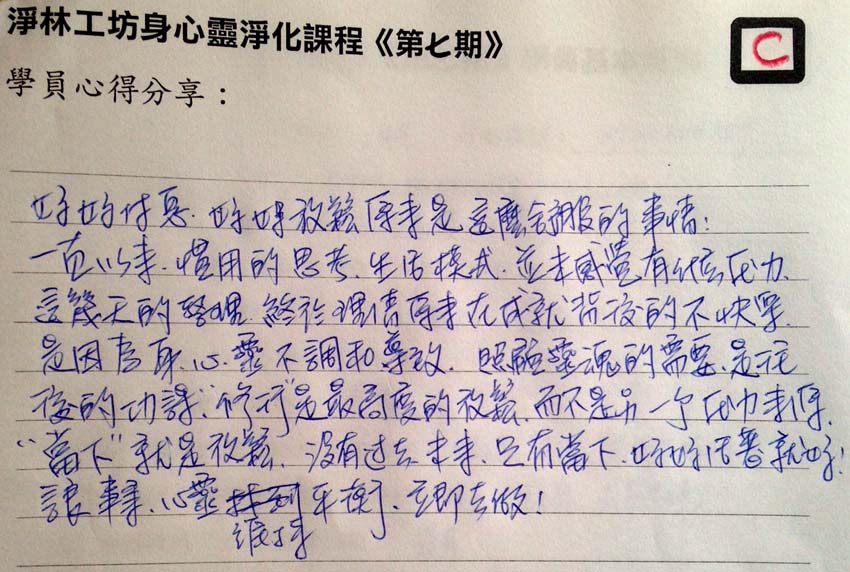 淨林工坊身心靈淨化課程《第七期》
C
學員心得分享：
好好休息．好好放鬆原來是這麼舒服的事情：
一直以來．慣用的思考．生活模式．並未感覺有任何壓力．
這幾天的整理．終於理清原來在成就背後的不快樂．
是因為身．心．靈不調和導致．照顧靈魂的需要．是往
後的功課．"修行"是最高度的放鬆．而不是另一个壓力來源．
"當下"就是放鬆．沒有过去未來．只有當下．好好活著就好！
讓身．心靈平衡．立即去做！
維持